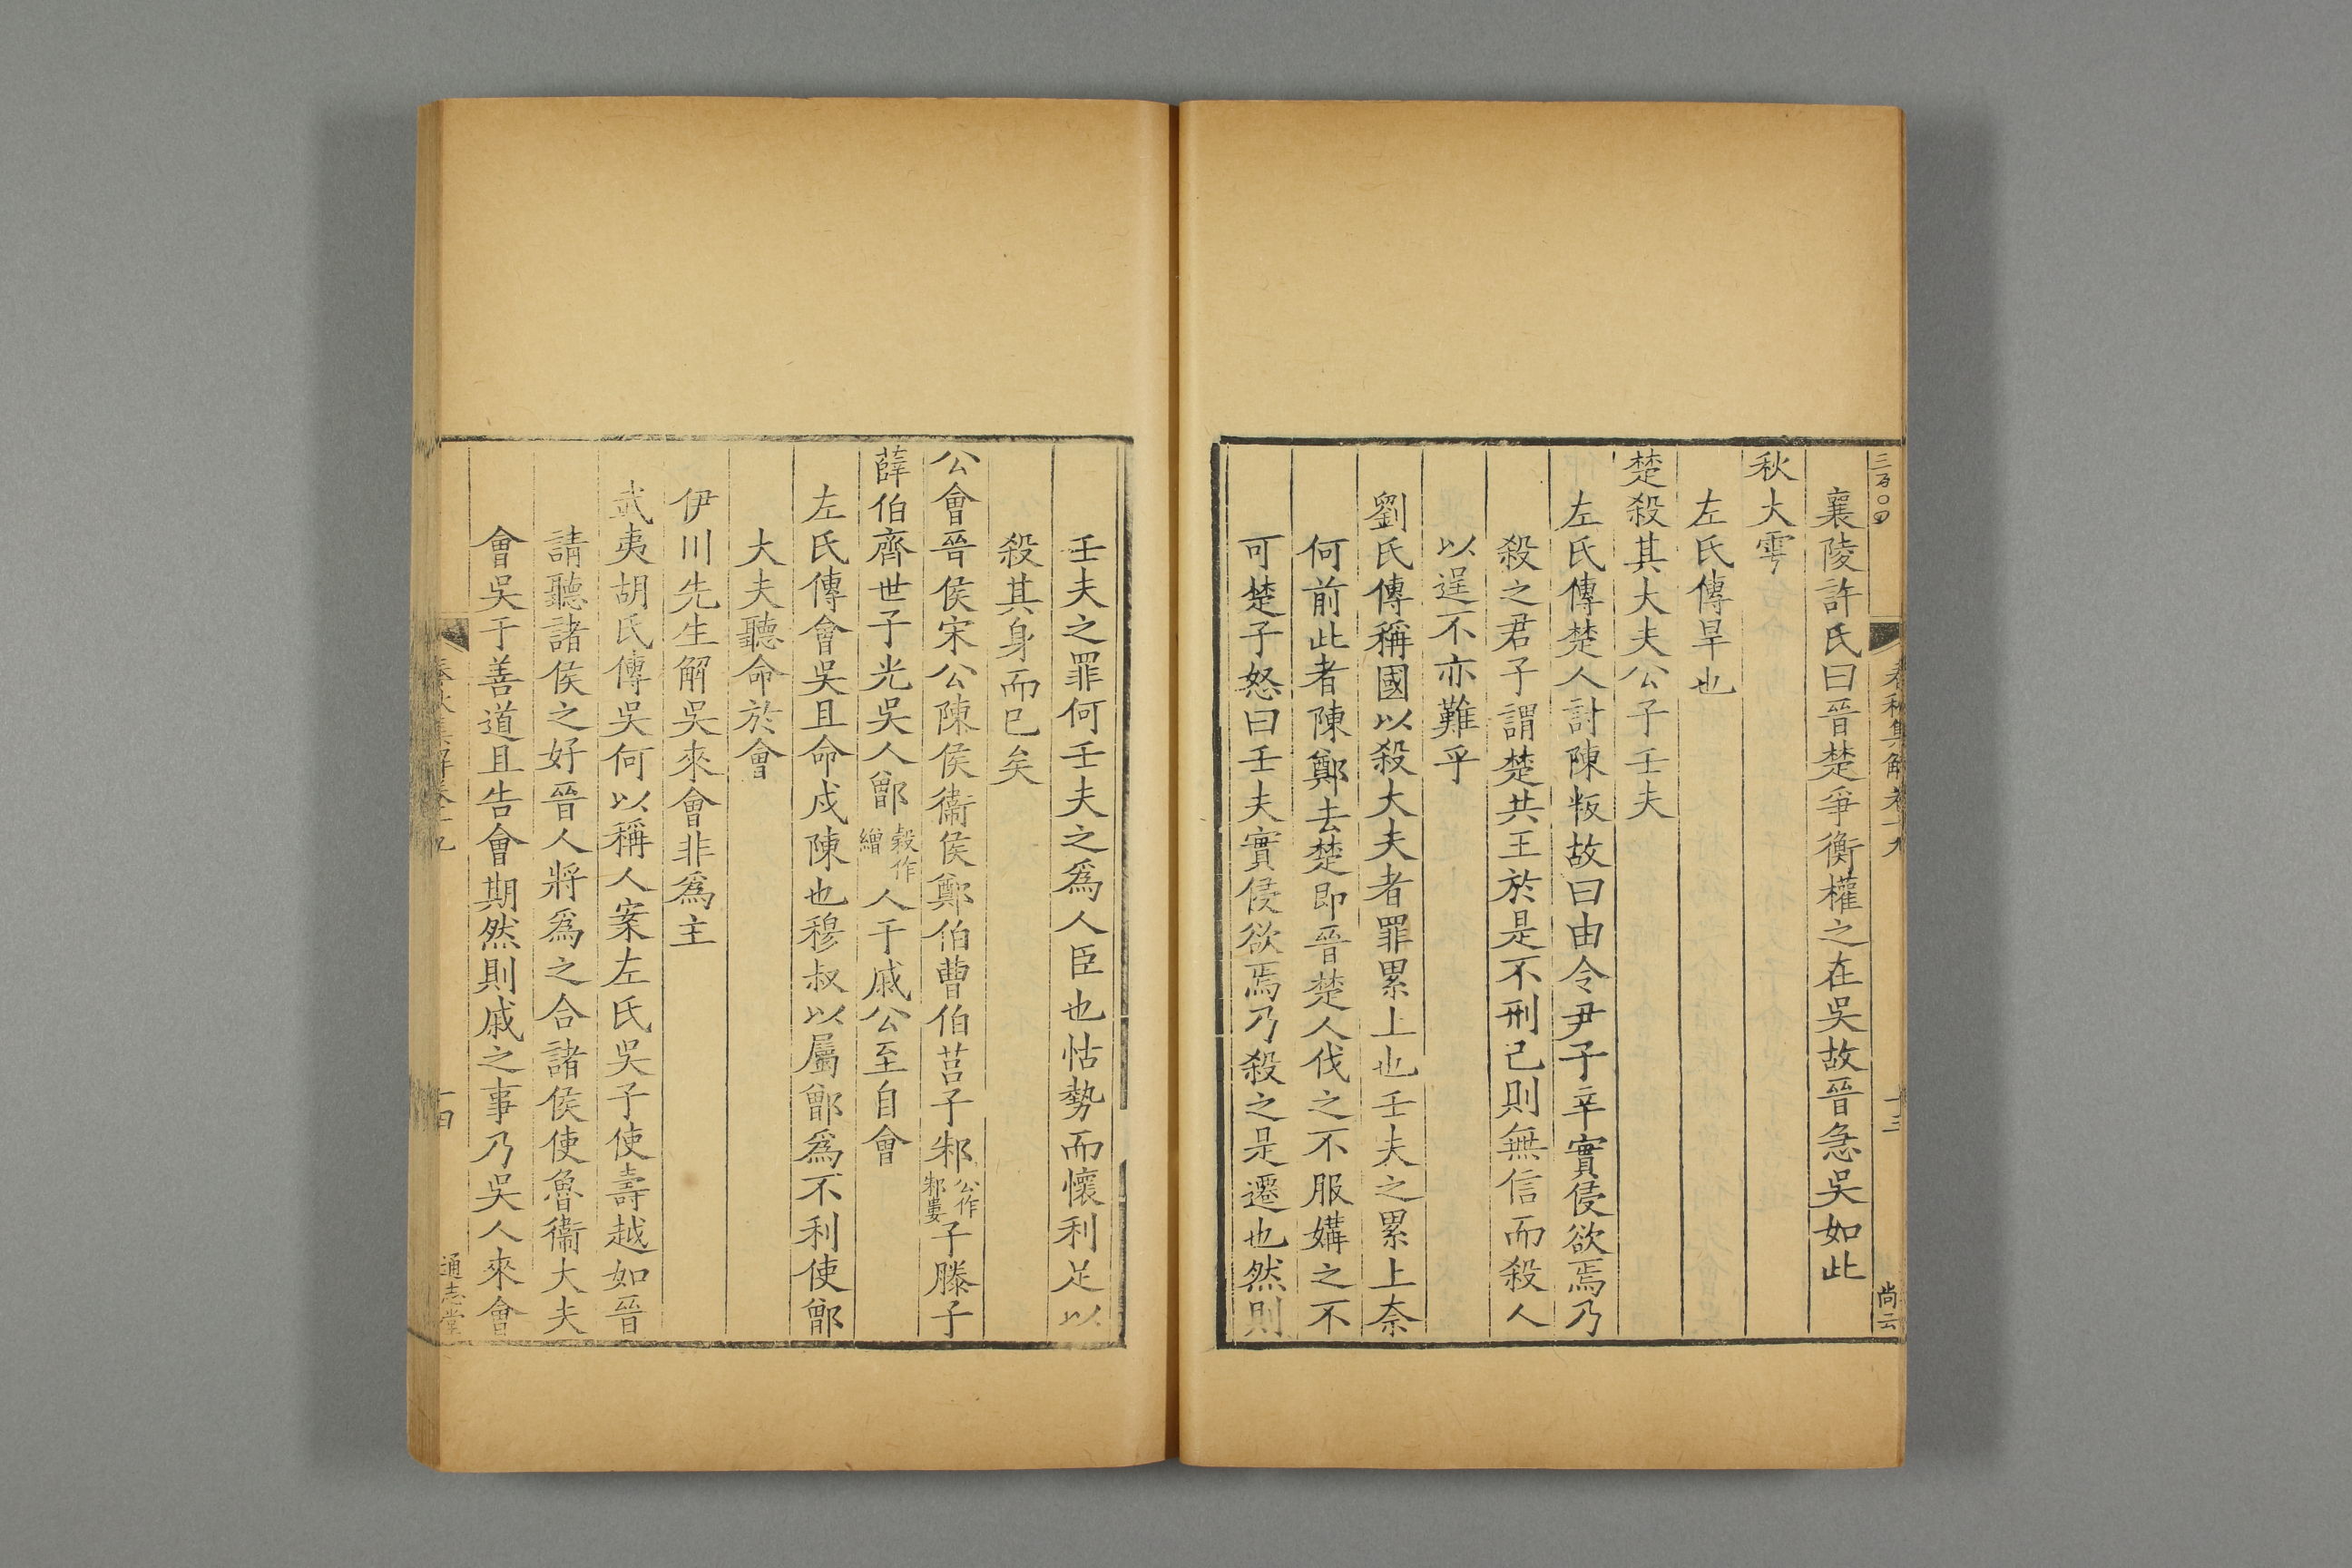 三百〇四
春秋集解卷十九
十三
尚云
襄陵許氏曰晉楚爭衡權之在吳故晉急吳如此
秋大雩
左氏傳旱也
楚殺其大夫公子壬夫
左氏傳楚人討陳叛故曰由令尹子辛實侵欲焉乃
殺之君子謂楚共王於是不刑已則無信而殺人
以逞不亦難乎
劉氏傳稱國以殺大夫者罪累上也壬夫之累上奈
何前此者陳鄭去楚即晉楚人伐之不服媾之不
可楚子怒曰壬夫實侵欲焉乃殺之是遷也然則
壬夫之罪何壬夫之爲人臣也怙勢而懷利足以
殺其身而已矣
公會晉侯宋公陳侯衞侯鄭伯曹伯莒子邾公作邾婁子滕子
薛伯齊世子光吳人鄫穀作繒人于戚公至自會
左氏傳會吳且命戍陳也穆叔以屬鄫爲不利使鄫
大夫聽命於會
伊川先生解吳來會非爲主
武夷胡氏傳吳何以稱人案左氏吳子使壽越如晉
請聽諸侯之好晉人將爲之合諸侯使魯衞大夫
會吳于善道且告會期然則戚之事乃吳人來會
春秋集解卷十九
十四
通志堂